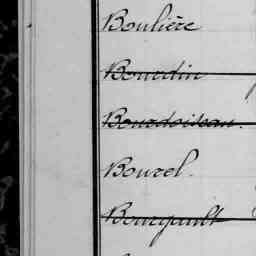 Boulière
Bourdin
Bourdoiseau.
Bourel.
Bourgault